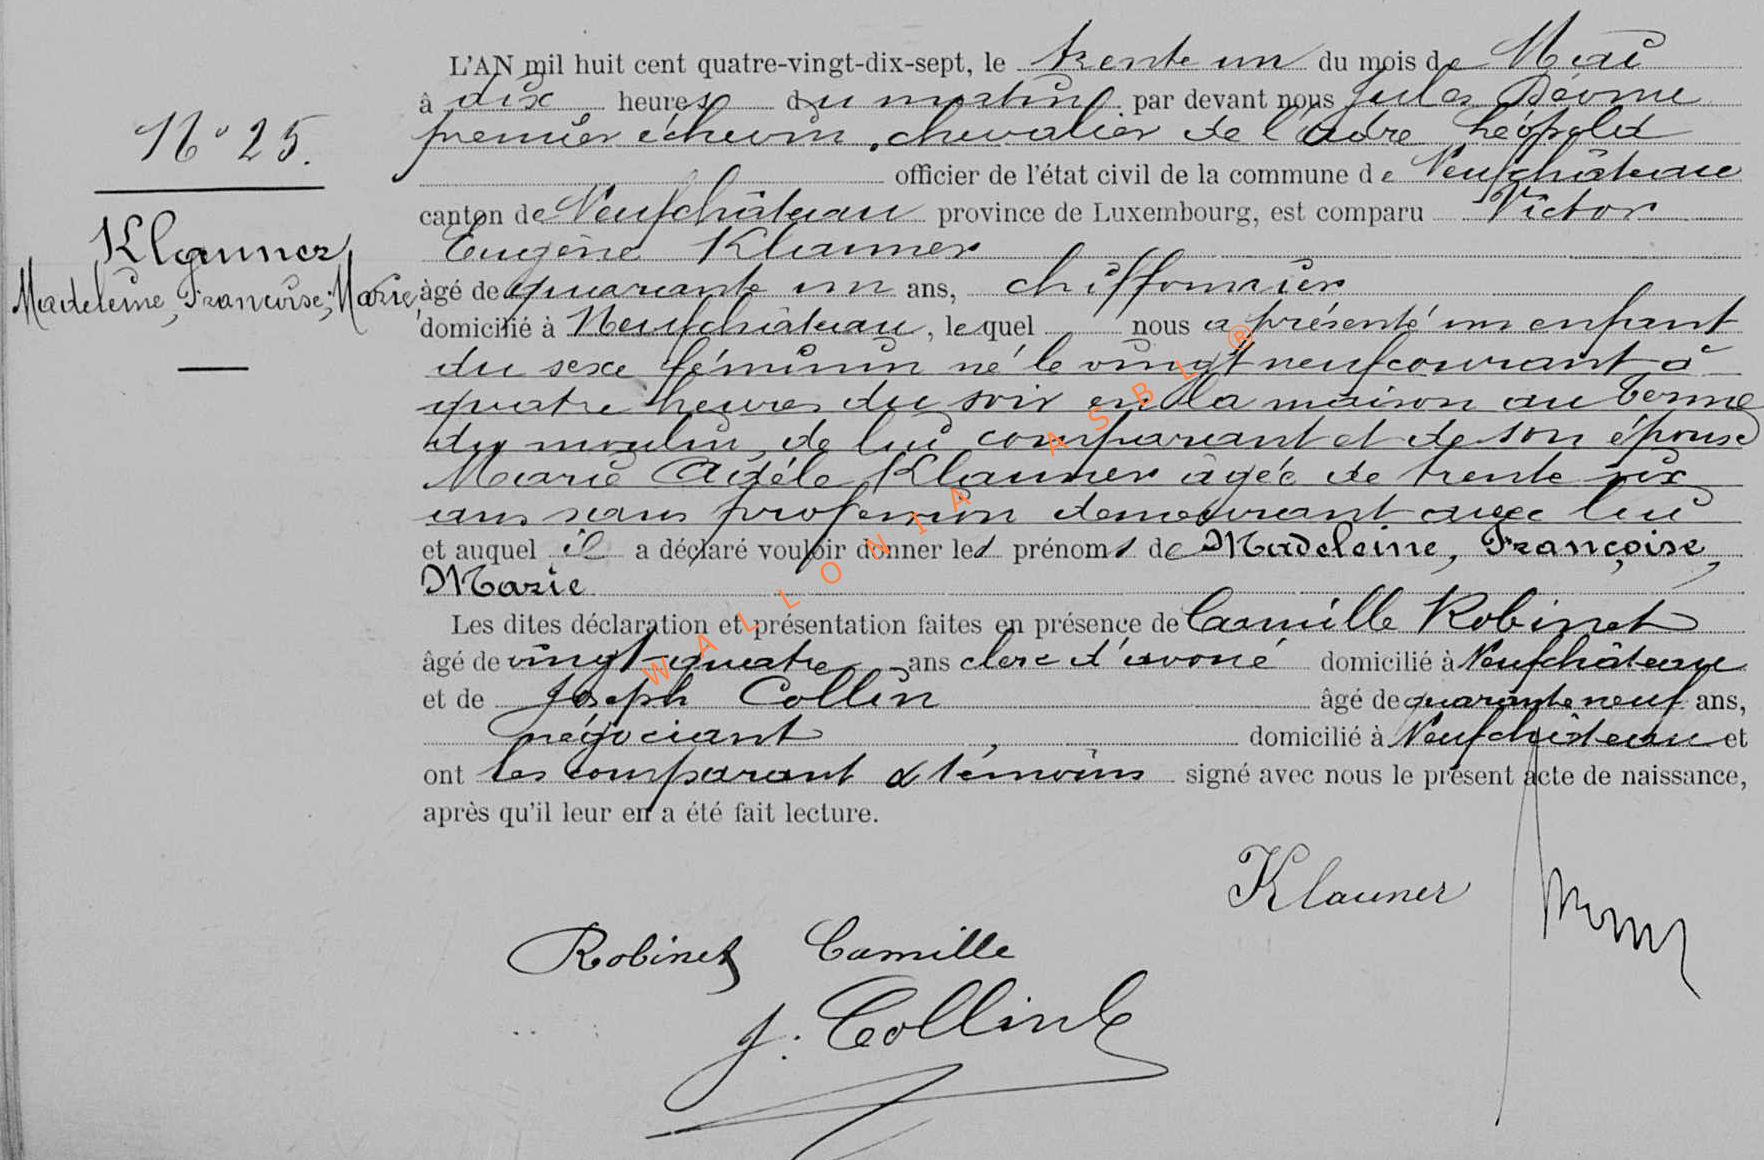 N° 25.
Klauner
Madeleine, Françoise, Marie,
L'AN mil huit cent quatre-vingt-dix-sept, le trente un du mois de Mai
à dix heures du matin par devant nous Jules
premier échevin, chevalier de l'Ordre Léopold
officier de l'état civil de la commune de Neufchâteau
canton de Neufchâteau province de Luxembourg, est comparu Victor
Eugène Klauner
âgé de quarante un ans, chiffonnier
domicilié à Neufchâteau, lequel nous a présenté un enfant
du sexe féminin né le vingt neuf courant à
quatre heures du soir en la maison au terme
du moulin, de lui comparant et de son épouse
Marie Adèle Klauner âgée de trente six
ans sans profession demeurant avec lui
et auquel il a déclaré vouloir donner les prénoms de Madeleine, Françoise,
Marie
Les dites déclaration et présentation faites en présence de Camille Robinet
âgé de vingt-quatre ans clerc d'avoué domicilié à Neufchâteau
et de Joseph Collin âgé de quarante neuf ans,
négociant, domicilié à Neufchâteau et
ont les comparant & témoins signé avec nous le présent acte de naissance,
après qu'il leur en a été fait lecture.
Klauner
Robinet Camille
J. Collin
WALLONIA ASBL ®